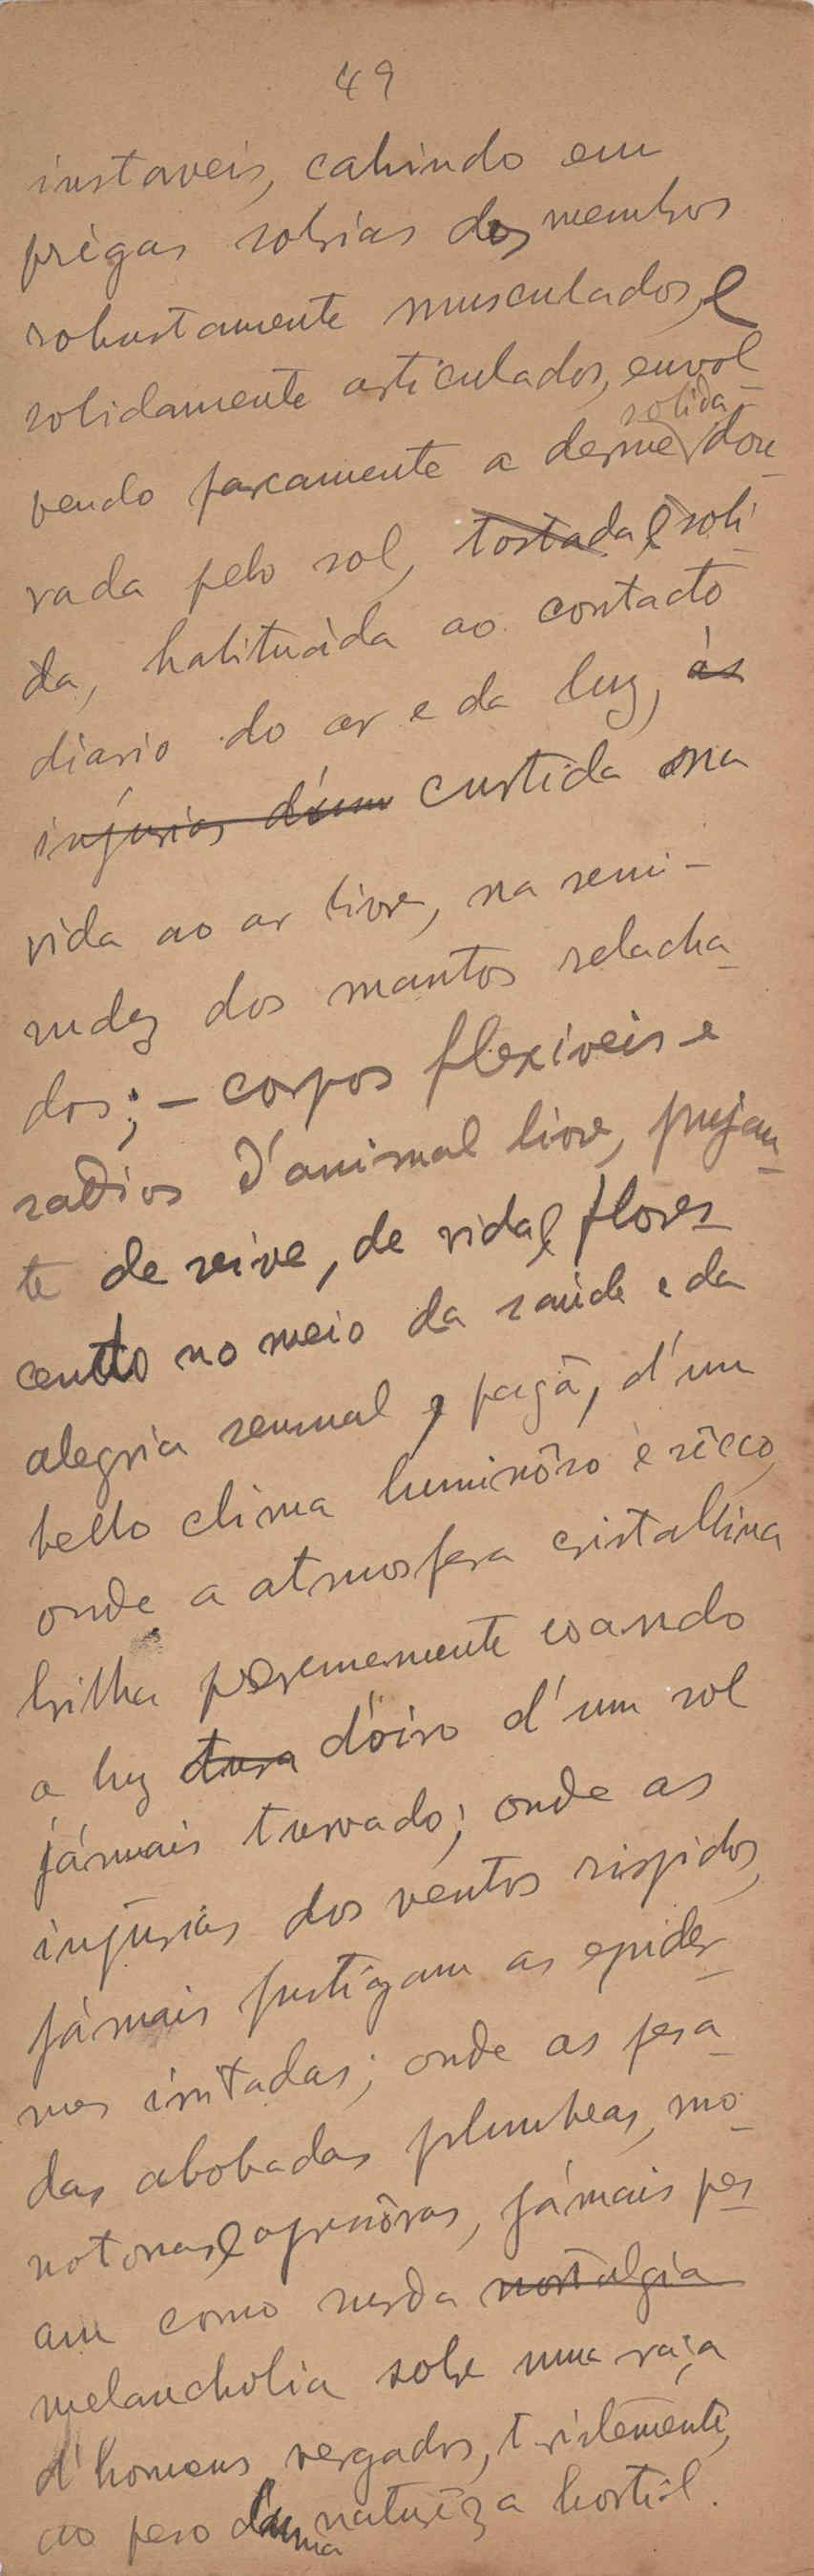 49
instaveis, cahindo em
prégas sobrias dos membros
robustamente musculados, e
solidamente articulados, envol
solida
vendo parcamente a derme dou
rada pelo sol, tostada e soli
da, habituáda ao contacto
diario do ar e da luz, ás
injurias d'um curtida na
vida ao ar livre, na semi-
nudez dos mantos relacha
dos; - corpos flexíveis e
sadios d'animal livre, pujan
te de seive, de vida, flores
cento no meio da saúde e da
alegria sensual e pagã, d'um
bello clima luminôso e sêcco,
onde a atmosfera cristallina
brilha perennemente coando
a luz dura d'oiro d'um sol
jámais turvado; onde as
injúrias dos ventos rispidos,
jámais fustigam as epider
mes irritadas; onde as pesa
das abobadas plumbeas, mo
notonas e opressôras, jámais pes
am como nesda nostalgia
melancholia sobre uma raça
d'homens vergados, tristemente,
ao peso d'uma naturêza hostil.